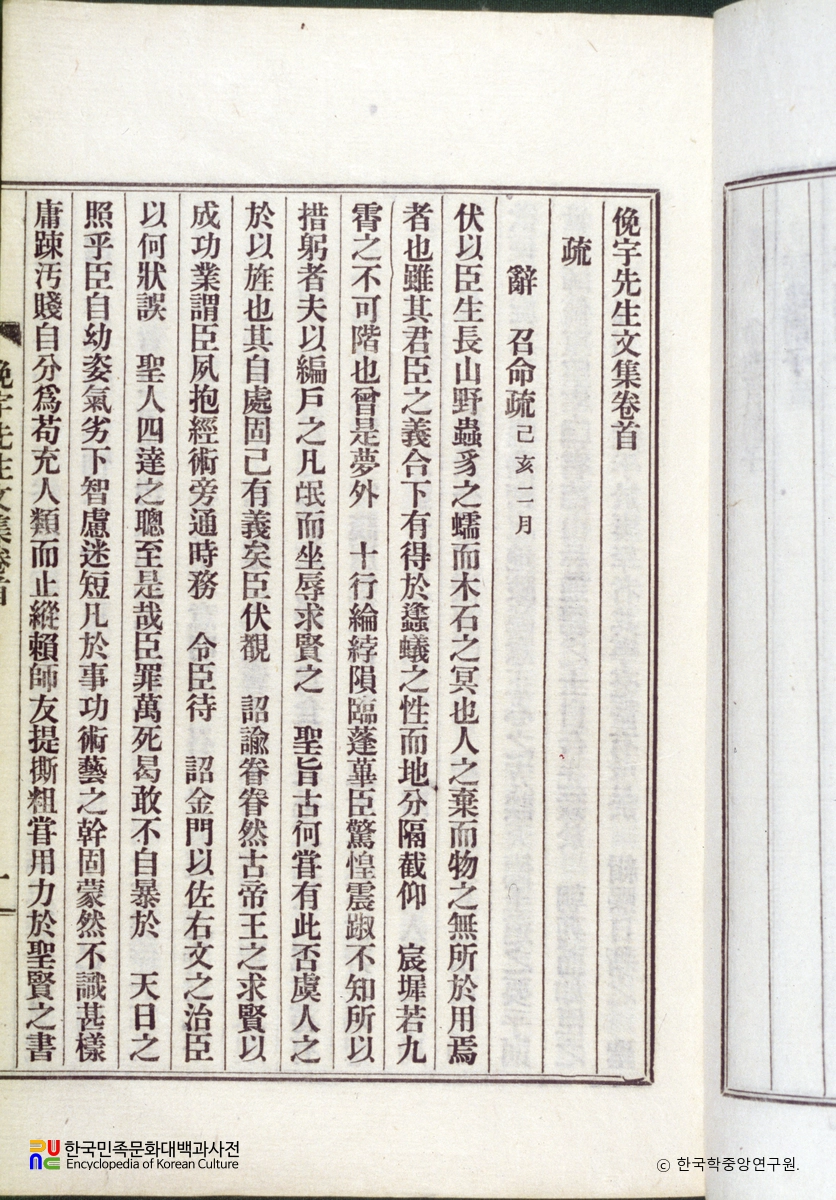 俛宇先生文集卷首
疏
辭 召命疏 己亥二月
伏以臣生長山野蟲豸之蠕而木石之冥也人之棄而物之無所於用焉
者也雖其君臣之義合下有得於螽蟻之性而地分隔截仰 宸墀若九
霄之不可階也曾是夢外 十行綸綍隕臨蓬蓽臣驚惶震踧不知所以
措躬者夫以編戶之凡氓而坐辱求賢之 聖旨古何甞有此否虞人之
於以旌也其自處固已有義矣臣伏覩 詔諭眷眷然古帝王之求賢以
成功業謂臣夙抱經術旁通時務 令臣待 詔金門以佐右文之治臣
以何狀誤 聖人四達之聰至是哉臣罪萬死曷敢不自暴於 天日之
照乎臣自幼姿氣劣下智慮迷短凡於事功術藝之幹固蒙然不識甚樣
庸踈汚賤自分爲苟充人類而止縱賴師友提撕粗甞用力於聖賢之書
俛宇先生文集卷首
一
한국민족문화대백과사전
Encyclopedia of Korean Culture
© 한국학중앙연구원.